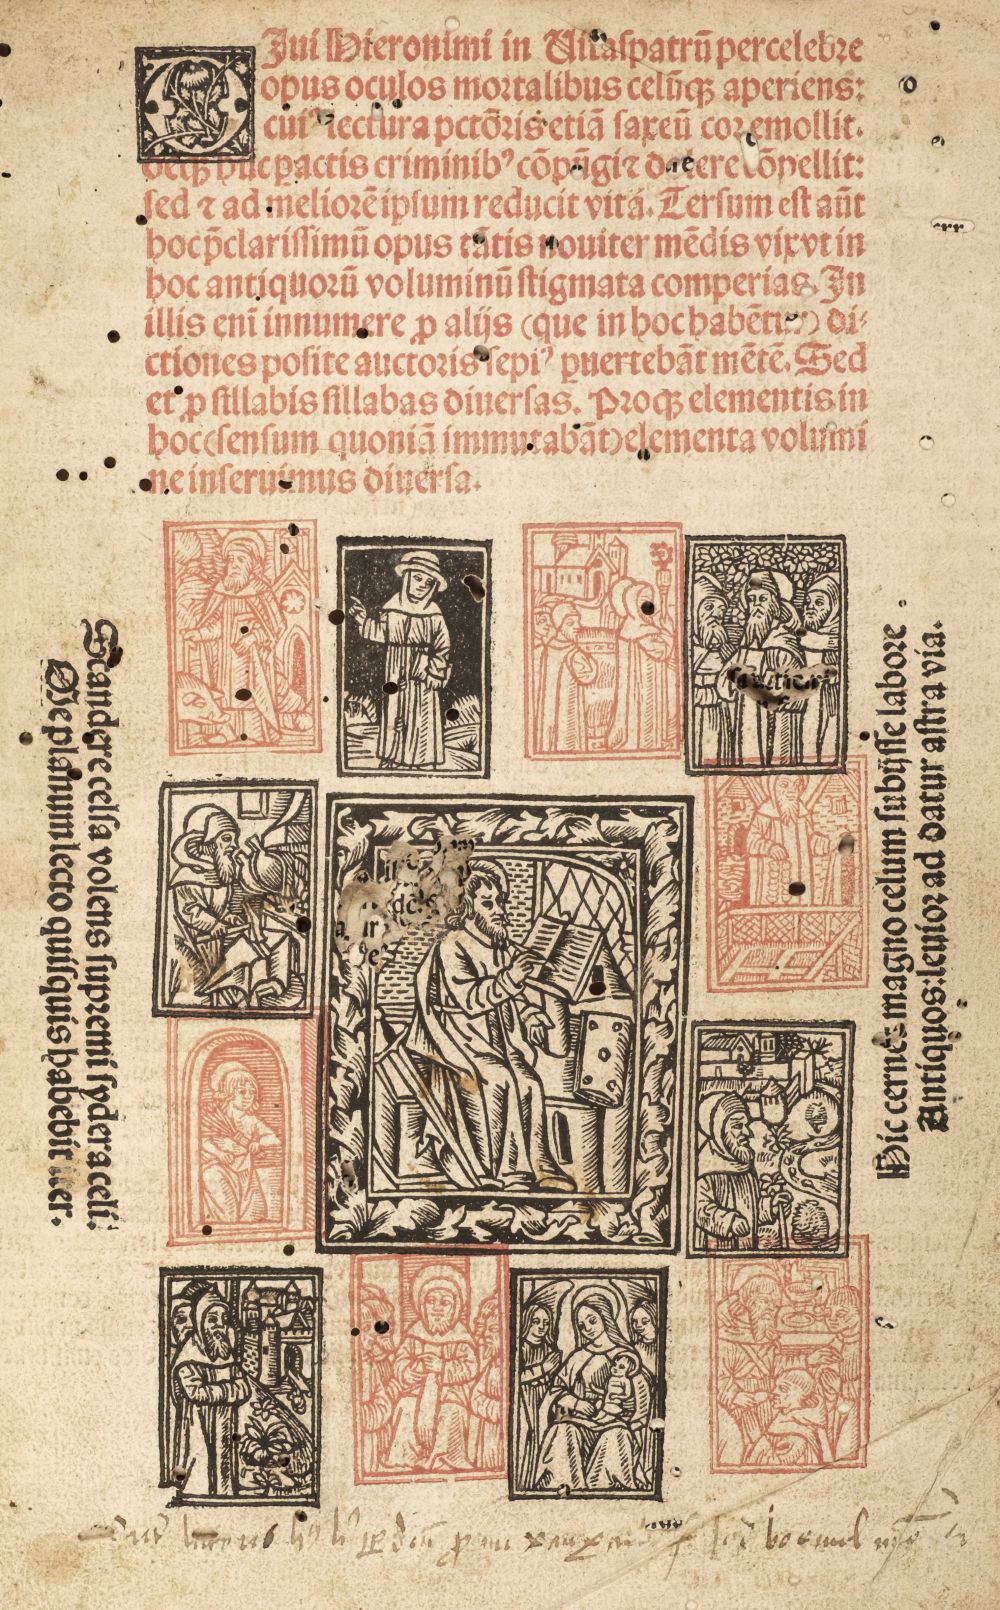 Diui Hieronimi in Uitaspatrū percelebre
opus oculos mortalibus celūqꝫ aperiens:
cui⁹ lectura pctōris etiā saxeū cor emollit.
deqꝫ huc ꝑactis criminibꝰ cōpūgi ⁊ dolere cōpellit:
sed ⁊ ad meliorē ipsum reducit vitā. Tersum est aūt
hoc p̄clarissimū opus tātis nouiter mēdis vix vt in
hoc antiquorū voluminū stigmata comperias. In
illis enī innumere ꝓ alijs (que in hoc habētur) di⸗
ctiones posite auctoris sepi⁹ ꝑuertebāt mētē. Sed
et ꝓ sillabis sillabas diuersas. Proqꝫ elementis in
hoc (sensum quoniā immutabāt) elementa volumi
ne inseruimus diuersa.
Scandere celsa volens supremi sydera celi:
De planum lecto quisquis habebit iter.
Hic cernes magno celum subijsse labore
Antiquos: leuior ad datur astra via.